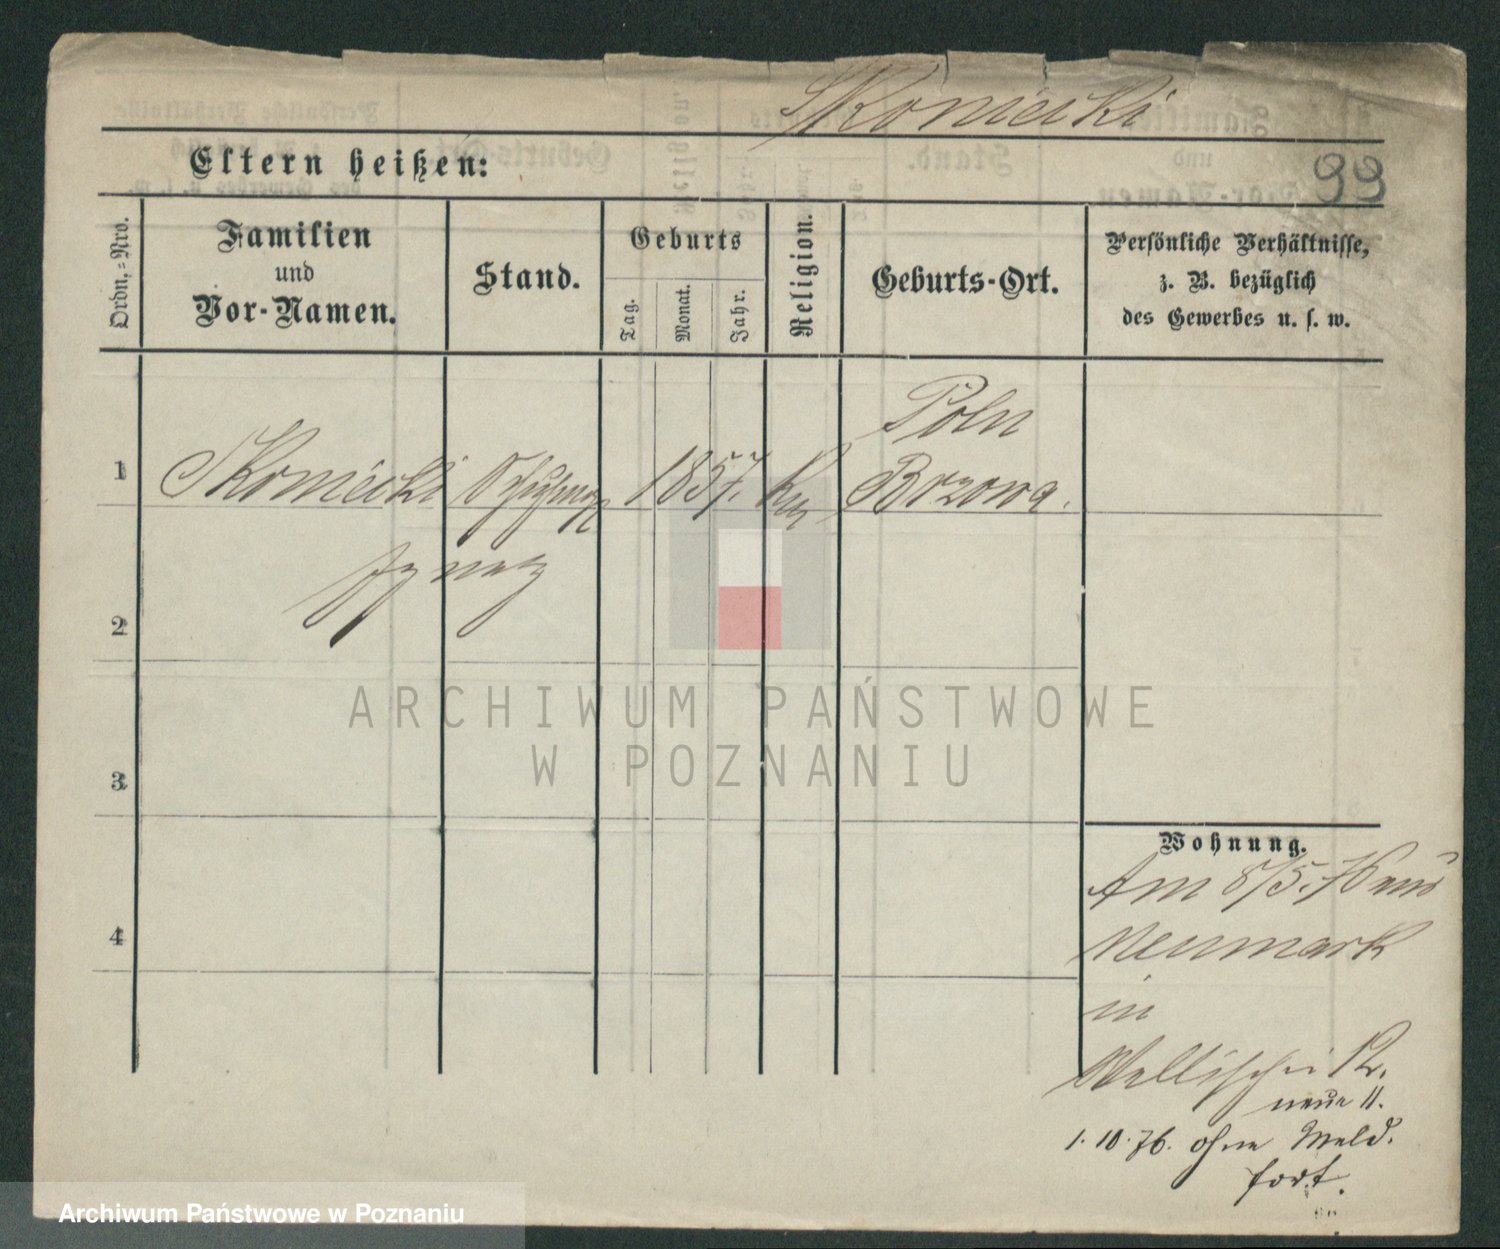 Skoniecki
33
Eltern heißen:
Ordn.-Nro.
Familien
und
Vor-Namen.
Stand.
Geburts
Tag.
Monat.
Jahr.
Religion.
Geburts-Ort.
Persönliche Verhältnisse,
z. B. bezüglich
des Gewerbes u. s. w.
Poln
1 Skoniecki 1857. Brzowa.
Ignatz
2
3
4
Wohnung.
Am 8/5.76 aus
Neumark
in
Wallischei 12.
neue 11.
1.10.76. ohne Meld.
fort.
ARCHIWUM PAŃSTWOWE
W POZNANIU
Archiwum Państwowe w Poznaniu